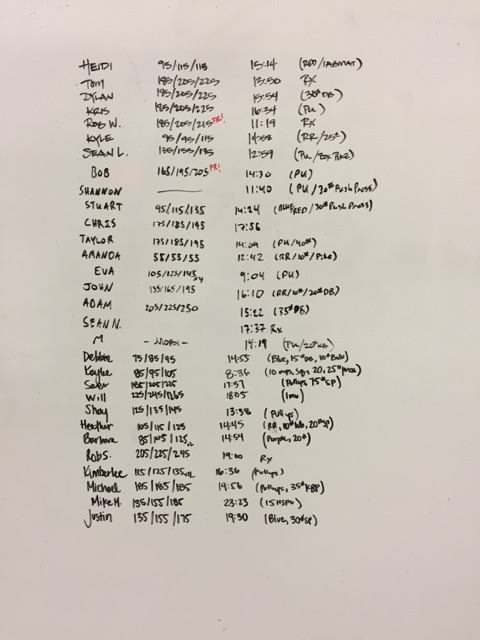 HEIDI 95/115/115 15:14
TOM 185/205/225 13:50 RX
DYLAN 195/205/225 15:54 (30# DB)
KRIS 185/205/225 16:34 (PU)
ROB W. 185/205/215 PR! 11:19 RX
KYLE 95/95/115 14:58 (RR/25#)
SEAN L. 135/155/175 12:59
BOB 165/195/205 PR! 14:30 (PU)
SHANNON 11:40 (PU/30# PUSH PRESS)
STUART 95/115/135 14:24 (BLUE/RED/30# PUSH PRESS)
CHRIS 175/185/195 17:56
TAYLOR 175/185/195 14:09 (PU/40#)
AMANDA 55/55/55 12:42 (RR/10#/PIKE)
EVA 105/125/145 x4 9:04 (PU)
JOHN 135/165/195 16:10 (RR/10#/20# DB)
ADAM 205/225/250 15:22 (35# DB)
SEAN N. 17:37 RX
M 14:19
Debbie 75/85/95 14:55
Kaylee 85/95/105 8:36
185/205/225 17:57 (Pullups 75# SP)
Will 18:05
Shay 125/135/145 13:38 (Pullups)
Heather 105/115/125 14:45
Barbara 85/105/125 14:54 (Purple, 20#)
Rob S. 205/225/245 19:00 Rx
Kimberlee 115/125/135 16:36 (Pullups)
Michael 185/185/185 19:56 (Pullups, 35# KBP)
Mike H. 135/155/185 23:23 (15 HSPU)
Justin 135/155/175 19:30 (Blue, 30# SP)